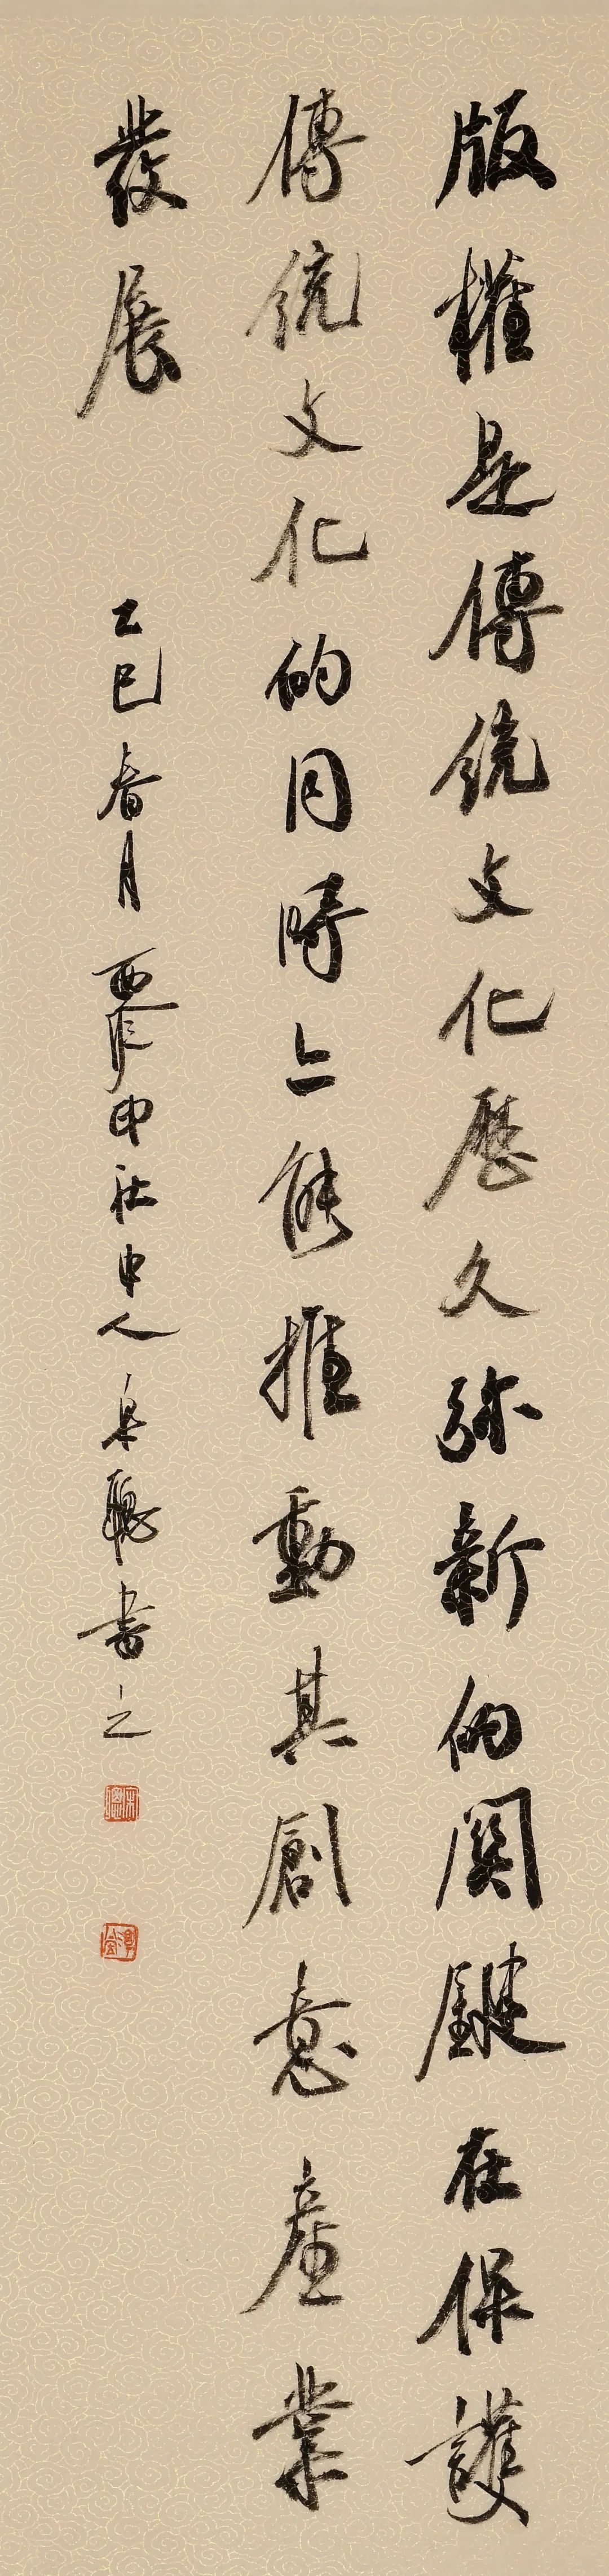 版權是傳統文化歷久弥新的関鍵在保護
傳統文化的同時亦能推動其創意產業
發展
乙巳春月西泠印社中人朱聰書之